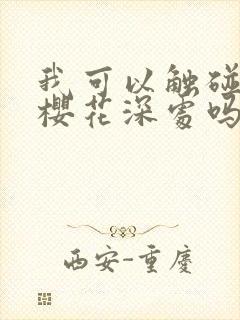 我可以触碰
樱花深处吗
西安-重慶